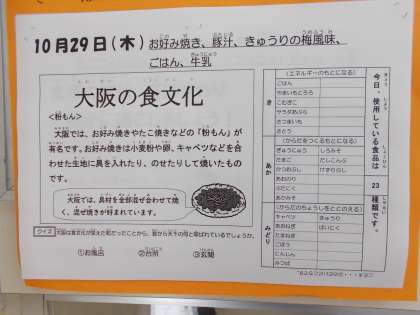 10月29日(木) お好み焼き、豚汁、きゅうりの梅風味、
ごはん、牛乳
大阪の食文化
<粉もん>
大阪では、お好み焼きやたこ焼きなどの「粉もん」が
有名です。お好み焼きは小麦粉や卵、キャベツなどを合
わせた生地に具を入れたり、のせたりして焼いたもの
です。
大阪では、具材を全部混ぜ合わせて焼
く、混ぜ焼きが好まれています。
クイズ 大阪は食文化が栄えた町だったことから、昔から天下の何と呼ばれているでしょうか。
①お風呂 ②台所 ③玄関
今日、使用している食品は
23
種類です。
き
(エネルギーのもとになる)
ごはん
やまいもとろろ
こむぎこ
サラダあぶら
さつまいも
さとう
あか
(からだをつくるもとになる)
ぎゅうにゅう しろみそ
たまご だしこんぶ
かつおぶし けずりぶし
あおのり
ぶたにく
あかみそ
みどり
(からだのちょうしをととのえる)
キャベツ きゅうり
あおねぎ ねりうめ
たまねぎ
ごぼう
にんじん
みつば